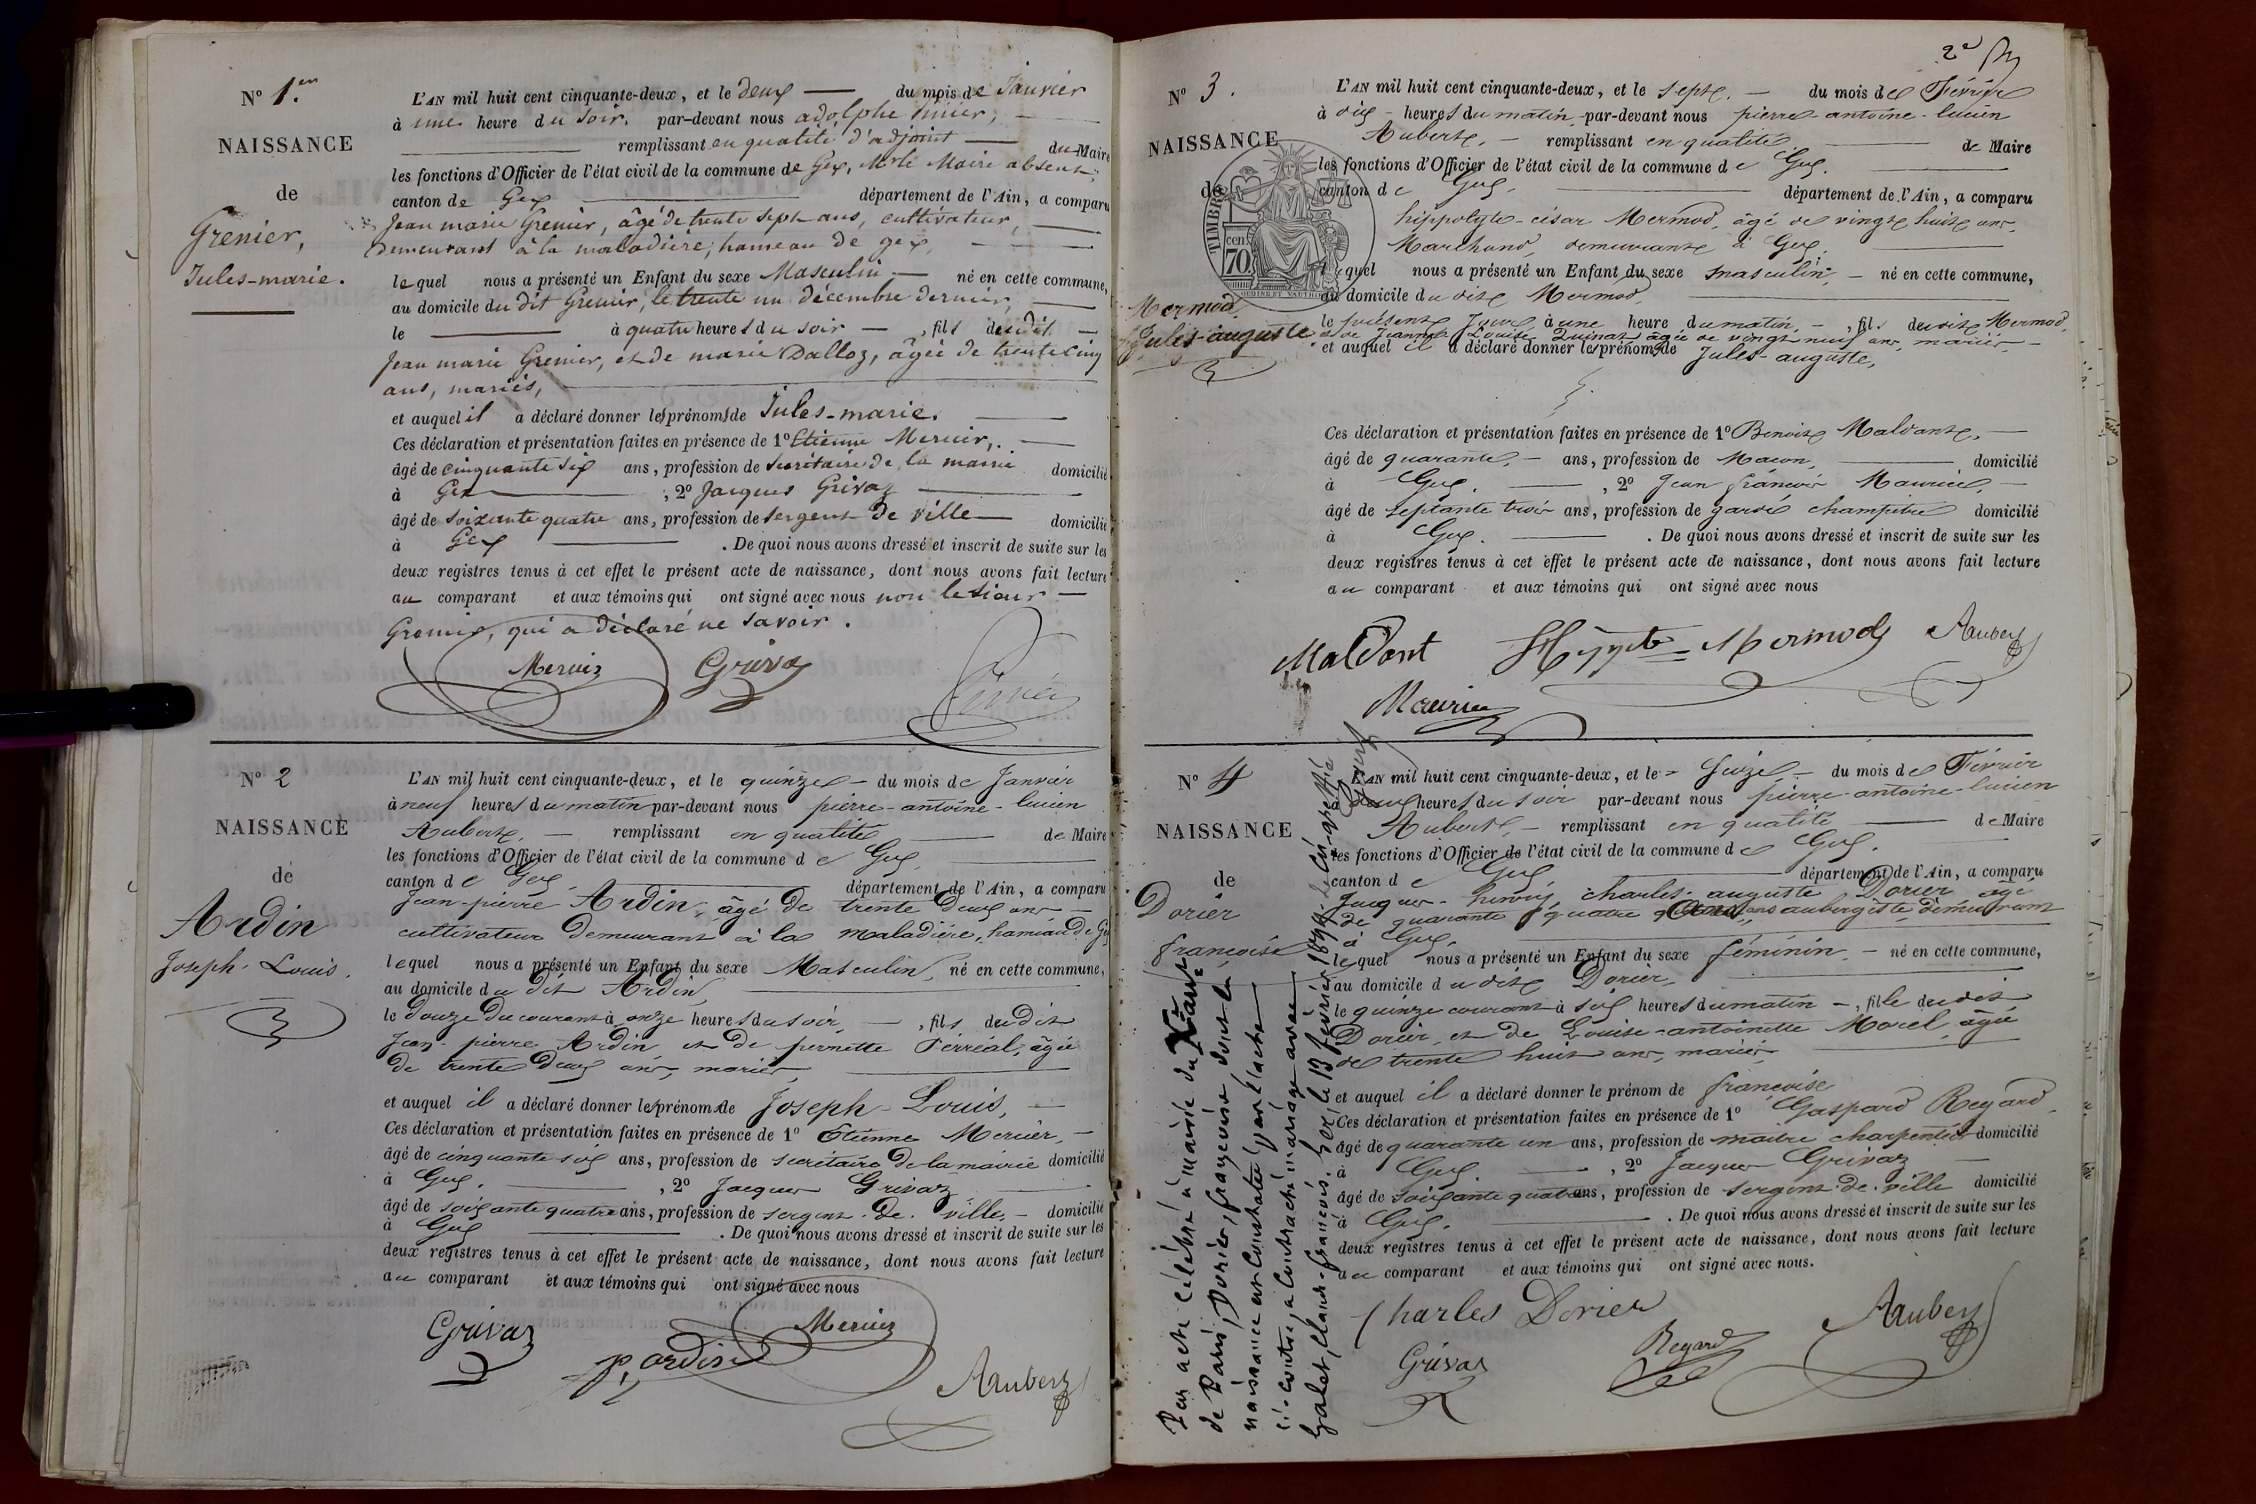 N° 1.er
NAISSANCE
de
Grenier,
Jules-marie.
L'AN mil huit cent cinquante-deux, et le deux — du mois de Janvier
à une heure du soir, par-devant nous adolphe
remplissant en qualité d'adjoint — du Maire
les fonctions d'Officier de l'état civil de la commune de Gex, Mr le Maire absent,
canton de Gex — département de l'Ain, a comparu
Jean marie Grenier, âgé de trente sept ans, cultivateur,
demeurant à la maladière, hameau de gex,
lequel nous a présenté un Enfant du sexe Masculin — né en cette commune,
au domicile du dit Grenier, le trente un décembre dernier,
le — à quatre heures du soir — , fils du dit —
Jean marie Grenier, et de marie Dalloz, âgée de trente cinq
ans, mariés,
et auquel il a déclaré donner les prénoms de Jules-marie.
Ces déclaration et présentation faites en présence de 1° Etienne Mercier,
âgé de cinquante six ans, profession de secrétaire de la mairie domicilié
à Gex — , 2° Jacques Grivaz
âgé de soixante quatre ans, profession de sergent de ville — domicilié
à Gex — . De quoi nous avons dressé et inscrit de suite sur les
deux registres tenus à cet effet le présent acte de naissance, dont nous avons fait lecture
au comparant et aux témoins qui ont signé avec nous non le sieur —
Grenier, qui a déclaré ne savoir.
Mercier Grivaz
N° 2
NAISSANCE
de
Ardin
Joseph-Louis.
L'AN mil huit cent cinquante-deux, et le quinze — du mois de Janvier
à neuf heures du matin par-devant nous pierre-antoine-lucien
Aubert, — remplissant en qualité — de Maire
les fonctions d'Officier de l'état civil de la commune de Gex
canton de Gex — département de l'Ain, a comparu
Jean-pierre Ardin, âgé de trente deux ans —
cultivateur demeurant à la maladière, hameau de Gex
lequel nous a présenté un Enfant du sexe Masculin, né en cette commune,
au domicile du dit Ardin,
le douze du courant à onze heures du soir, — , fils du dit
Jean-pierre Ardin et de pernette Perréal, âgée
de trente deux ans, mariés,
et auquel il a déclaré donner les prénoms de Joseph-Louis, —
Ces déclaration et présentation faites en présence de 1° Etienne Mercier, —
âgé de cinquante six ans, profession de secrétaire de la mairie domicilié
à Gex. — , 2° Jacques Grivaz
âgé de soixante quatre ans, profession de sergent de ville, — domicilié
à Gex — . De quoi nous avons dressé et inscrit de suite sur les
deux registres tenus à cet effet le présent acte de naissance, dont nous avons fait lecture
au comparant et aux témoins qui ont signé avec nous
Grivaz Mercier
p. ardin Aubert
2e
N° 3.
NAISSANCE
de
TIMBRE
cen
70
Mermod,
Jules-auguste
L'AN mil huit cent cinquante-deux, et le sept. — du mois de Février
à dix — heures du matin, par-devant nous pierre-antoine-lucien
Aubert, — remplissant en qualité — de Maire
les fonctions d'Officier de l'état civil de la commune de Gex.
canton de Gex. — département de l'Ain, a comparu
hippolyte-césar Mermod, âgé de vingt huit ans,
Marchand, demeurant à Gex.
lequel nous a présenté un Enfant du sexe masculin, — né en cette commune,
au domicile du dit Mermod,
le présent jour, à une heure du matin, — , fils du dit Mermod,
et de Jeanne Louise Quinat âgée de vingt neuf ans, mariés, —
et auquel il a déclaré donner les prénoms de Jules-auguste,
Ces déclaration et présentation faites en présence de 1° Benoit Maldant, —
âgé de quarante, — ans, profession de Macon, — domicilié
à Gex. — , 2° Jean françois Maurice, —
âgé de septante trois ans, profession de garde champêtre domicilié
à Gex. — . De quoi nous avons dressé et inscrit de suite sur les
deux registres tenus à cet effet le présent acte de naissance, dont nous avons fait lecture
au comparant et aux témoins qui ont signé avec nous
Maldant Hypte Mermod Aubert
Maurice
N° 4
NAISSANCE
de
Dorier
françoise
L'AN mil huit cent cinquante-deux, et le — Seize — du mois de Février
à deux heures du soir par-devant nous pierre-antoine-lucien
Aubert, — remplissant en qualité — de Maire
les fonctions d'Officier de l'état civil de la commune de Gex.
canton de Gex — département de l'Ain, a comparu
Jacques-henry, charles-auguste Dorier âgé
de quarante quatre ans aubergiste demeurant
à Gex,
lequel nous a présenté un Enfant du sexe féminin, — né en cette commune,
au domicile du dit Dorier,
le quinze courant à six heures du matin — , fille du dit
Dorier, et de Louise-antoinette Morel, âgée
de trente huit ans, mariés,
et auquel il a déclaré donner le prénom de françoise
Ces déclaration et présentation faites en présence de 1° Gaspard Regard,
âgé de quarante un ans, profession de maitre charpentier domicilié
à Gex — , 2° Jacques Grivaz
âgé de soixante quatre ans, profession de sergent de ville domicilié
à Gex. — . De quoi nous avons dressé et inscrit de suite sur les
deux registres tenus à cet effet le présent acte de naissance, dont nous avons fait lecture
au comparant et aux témoins qui ont signé avec nous.
Charles Dorier Aubert
Grivaz Regard
Par acte célébré à la mairie du
de Paris, Dorier, françoise dont la
naissance est constatée par l'acte
ci-contre, a contracté mariage avec
Galet, Claude-françois. Gex le 13 février 1899.